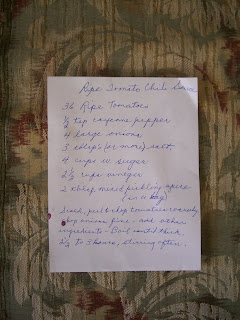 Ripe Tomato Chili Sauce
36 Ripe Tomatoes
1/2 tsp cayenne pepper
4 large onions
3 tblsp's (or more) salt
4 cups w. sugar
2 1/2 cups vinegar
2 tblsp mixed pickling spice
(in a bag)
peel & chop tomatoes coarsely
chop onions fine - add other
ingredients - Boil until thick
2 1/2 to 3 hours, stirring often.